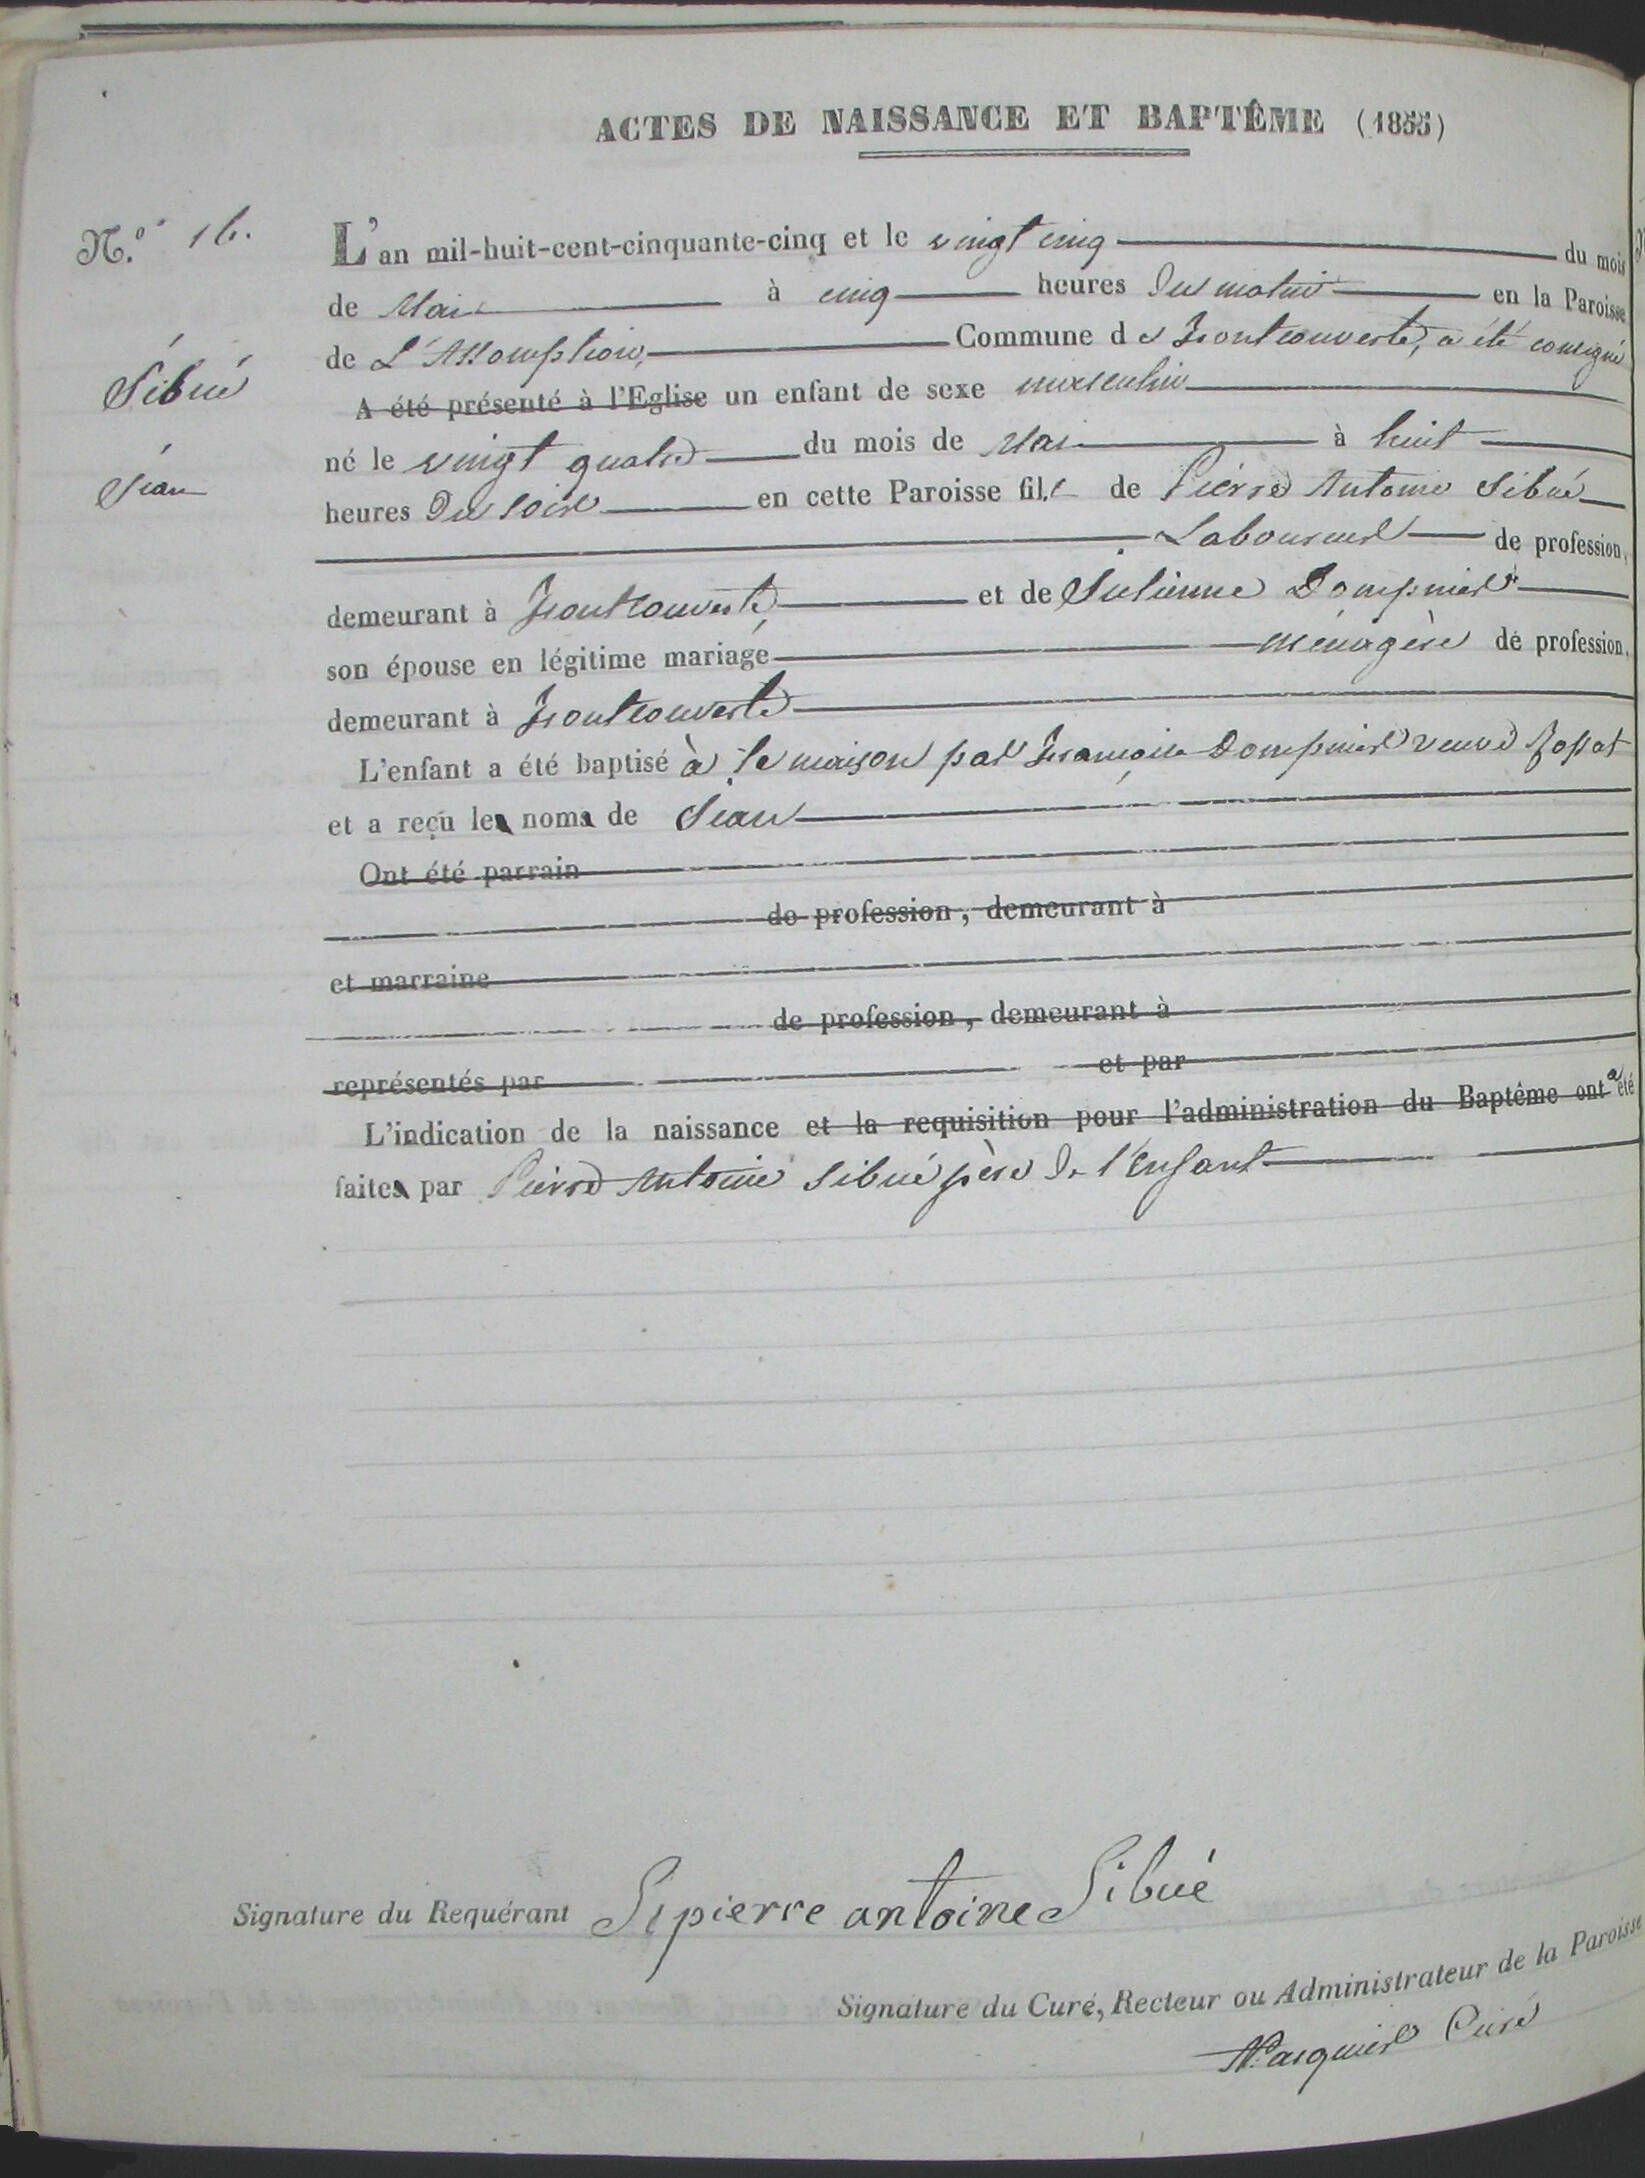 ACTES DE NAISSANCE ET BAPTÊME (1855)
N.º 16.
L'an mil-huit-cent-cinquante-cinq et le vingt cinq du mois
de Mai à cinq heures du matin en la Paroisse
de L'Assomption, Commune de Frontcouverte, a été consigné
Sibué
A été présenté à l'Eglise un enfant de sexe masculin
né le vingt quatre du mois de Mai à huit
Jean
heures du soir en cette Paroisse fils de Pierre Antoine Sibué
Laboureur de profession,
demeurant à Frontcouverte, et de Julienne Dompnier
son épouse en légitime mariage ménagère de profession,
demeurant à Frontcouverte
L'enfant a été baptisé à la maison par Françoise Dompnier veuve
et a reçu le nom de Jean
Ont été parrain
de profession, demeurant à
et marraine
de profession, demeurant à
représentés par et par
L'indication de la naissance et la requisition pour l'administration du Baptême ont a été
faite par Pierre Antoine Sibué père de l'enfant
Signature du Requérant Sipierre antoine Sibué
Signature du Curé, Recteur ou Administrateur de la Paroisse
Curé